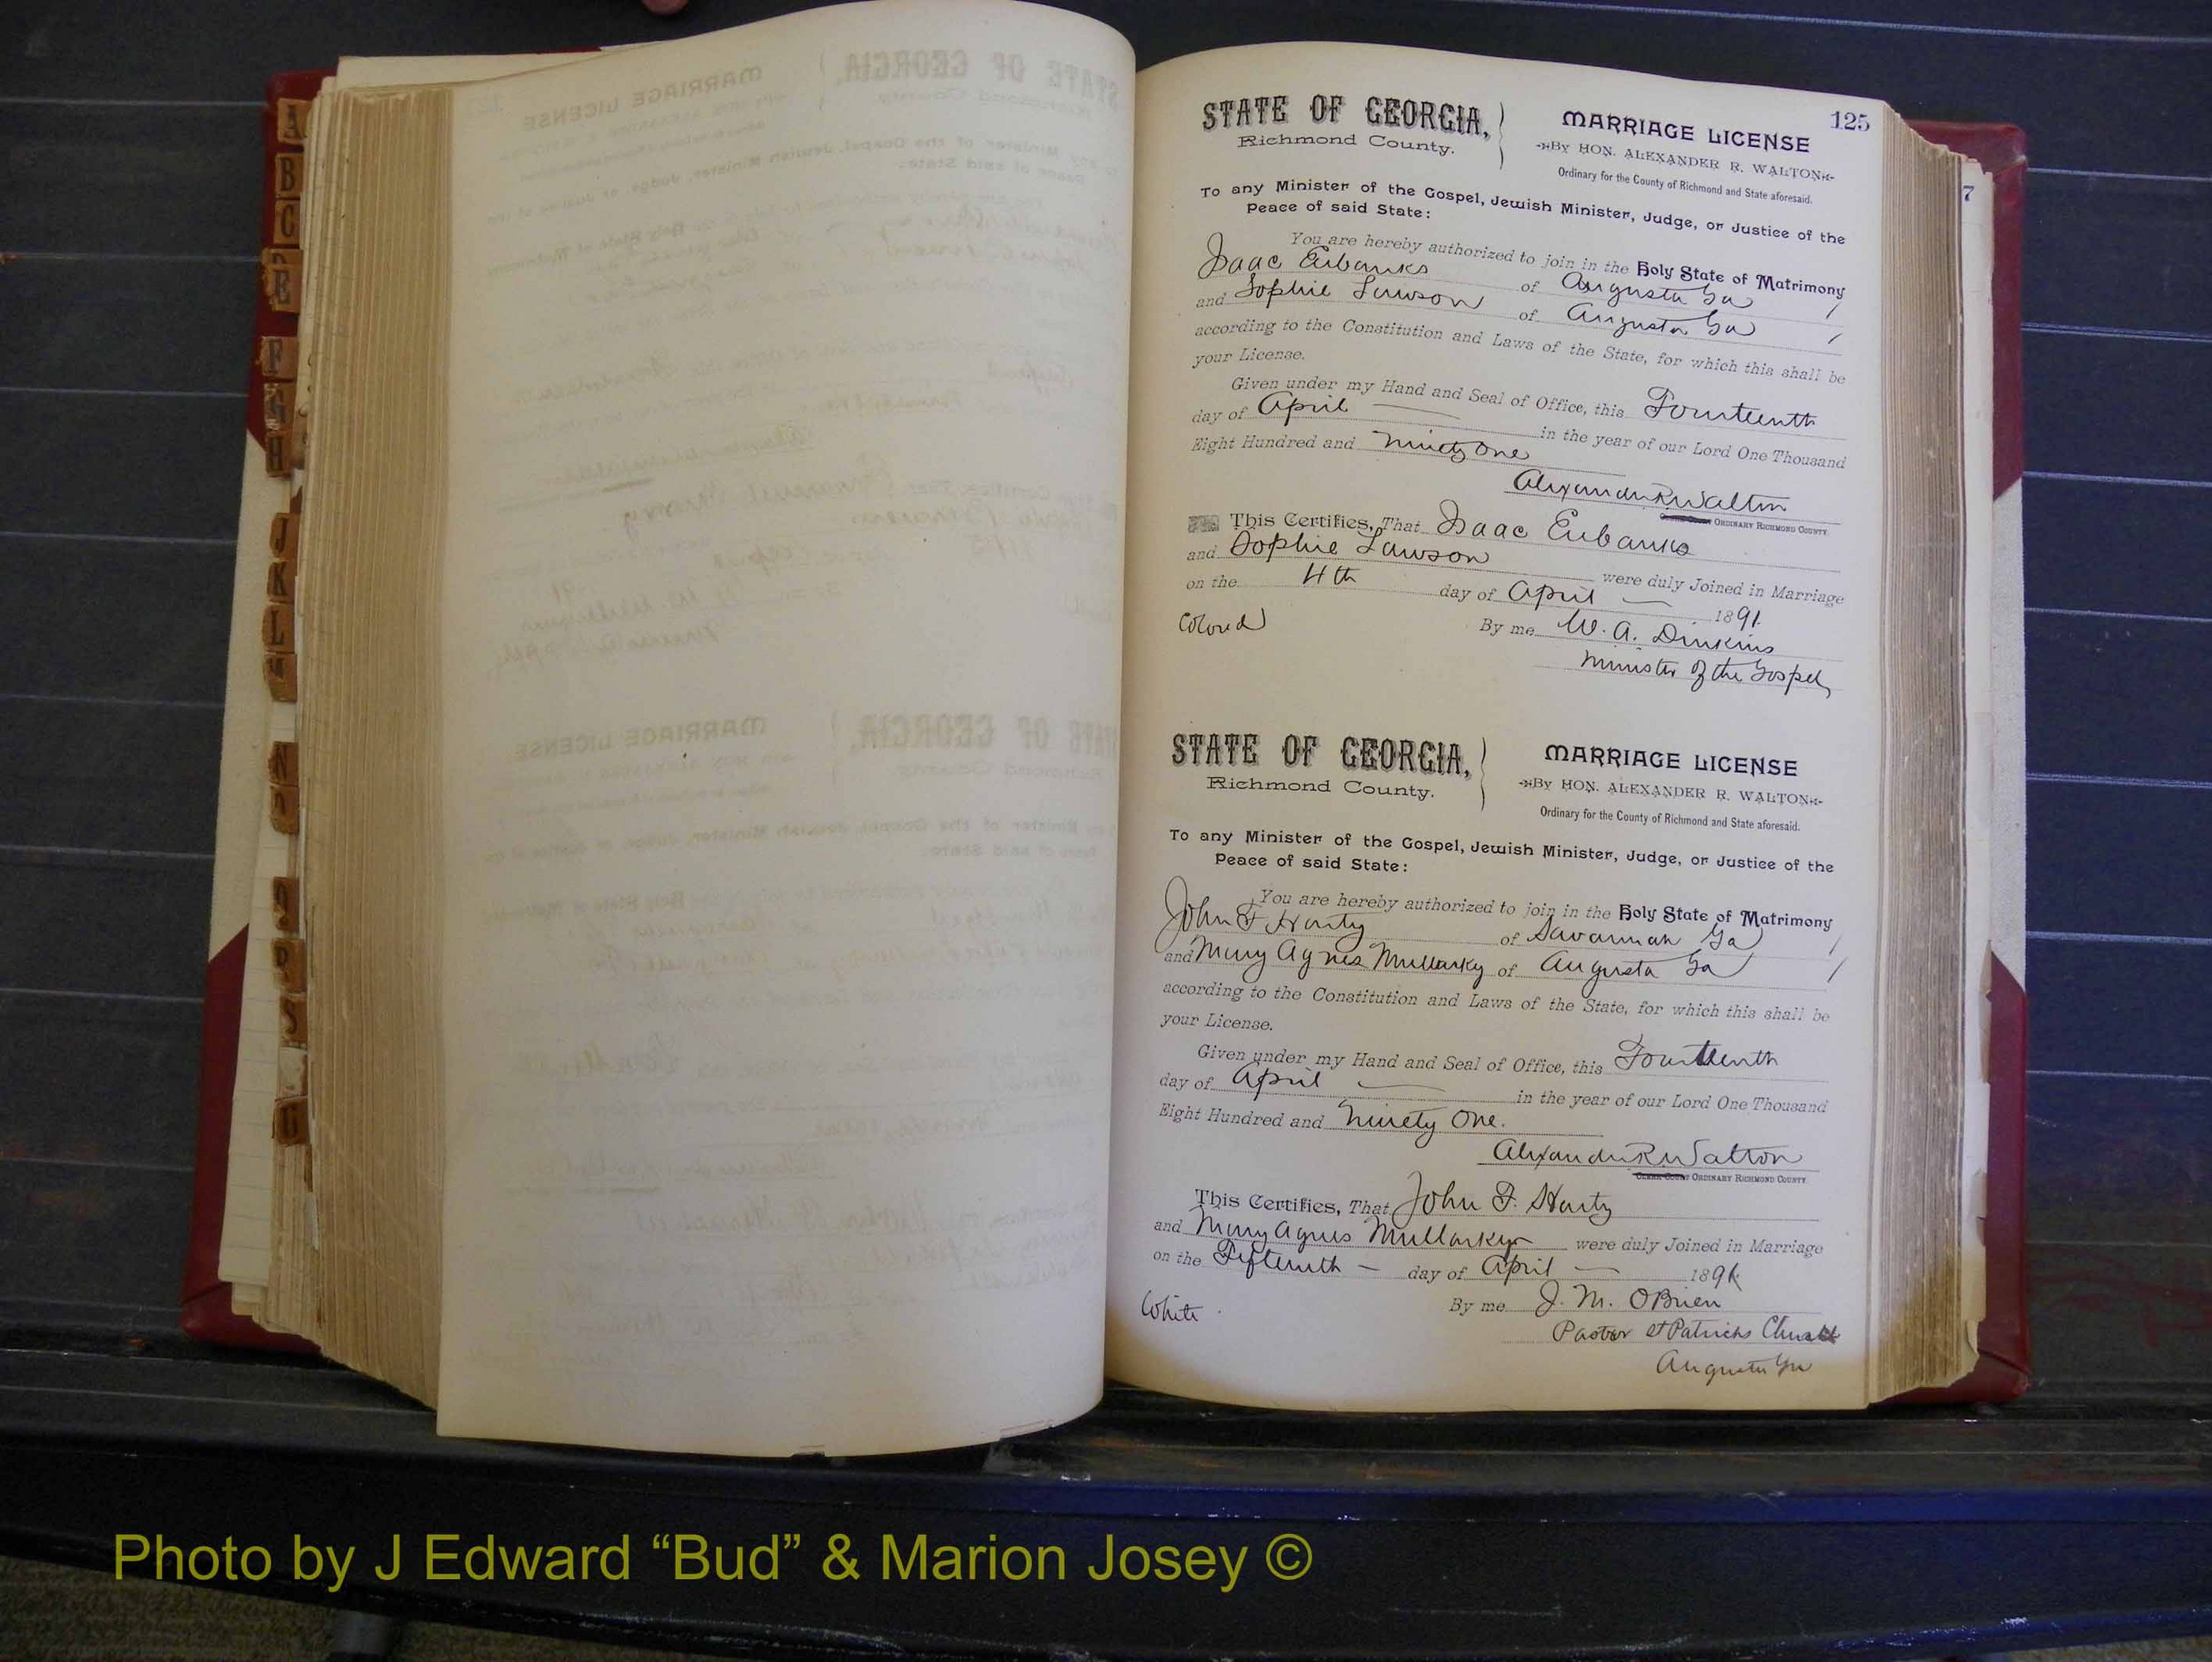 A
B
C
E
F
G
H
J
K
L
M
N
O
P
S
G
125
7
STATE OF GEORGIA,
Richmond County.
MARRIAGE LICENSE
By HON. ALEXANDER R. WALTON
Ordinary for the County of Richmond and State aforesaid.
To any Minister of the Gospel, Jewish Minister, Judge, or Justice of the
Peace of said State:
You are hereby authorized to join in the Holy State of Matrimony
Isaac Eubanks of Augusta Ga
and Sophie Lawson of Augusta Ga
according to the Constitution and Laws of the State, for which this shall be
your License.
Given under my Hand and Seal of Office, this Fourteenth
day of April in the year of our Lord One Thousand
Eight Hundred and Ninety One
Alexander R Walton
ORDINARY RICHMOND COUNTY.
This Certifies, That Isaac Eubanks
and Sophie Lawson were duly Joined in Marriage
on the 4th day of April 1891.
Colored
By me W. A. Dinkins
Minister of the Gospel
STATE OF GEORGIA,
Richmond County.
MARRIAGE LICENSE
By HON. ALEXANDER R. WALTON
Ordinary for the County of Richmond and State aforesaid.
To any Minister of the Gospel, Jewish Minister, Judge, or Justice of the
Peace of said State:
You are hereby authorized to join in the Holy State of Matrimony
John F Harty of Savannah Ga
and Mary Agnes Mullarky of Augusta Ga
according to the Constitution and Laws of the State, for which this shall be
your License.
Given under my Hand and Seal of Office, this Fourteenth
day of April in the year of our Lord One Thousand
Eight Hundred and Ninety One.
Alexander R Walton
CLERK COURT ORDINARY RICHMOND COUNTY.
This Certifies, That John F. Harty
and Mary Agnes Mullarky were duly Joined in Marriage
on the Fifteenth day of April 1891.
White
By me J. M. OBrien
Pastor St Patricks Church
Augusta Ga
Photo by J Edward “Bud” & Marion Josey ©